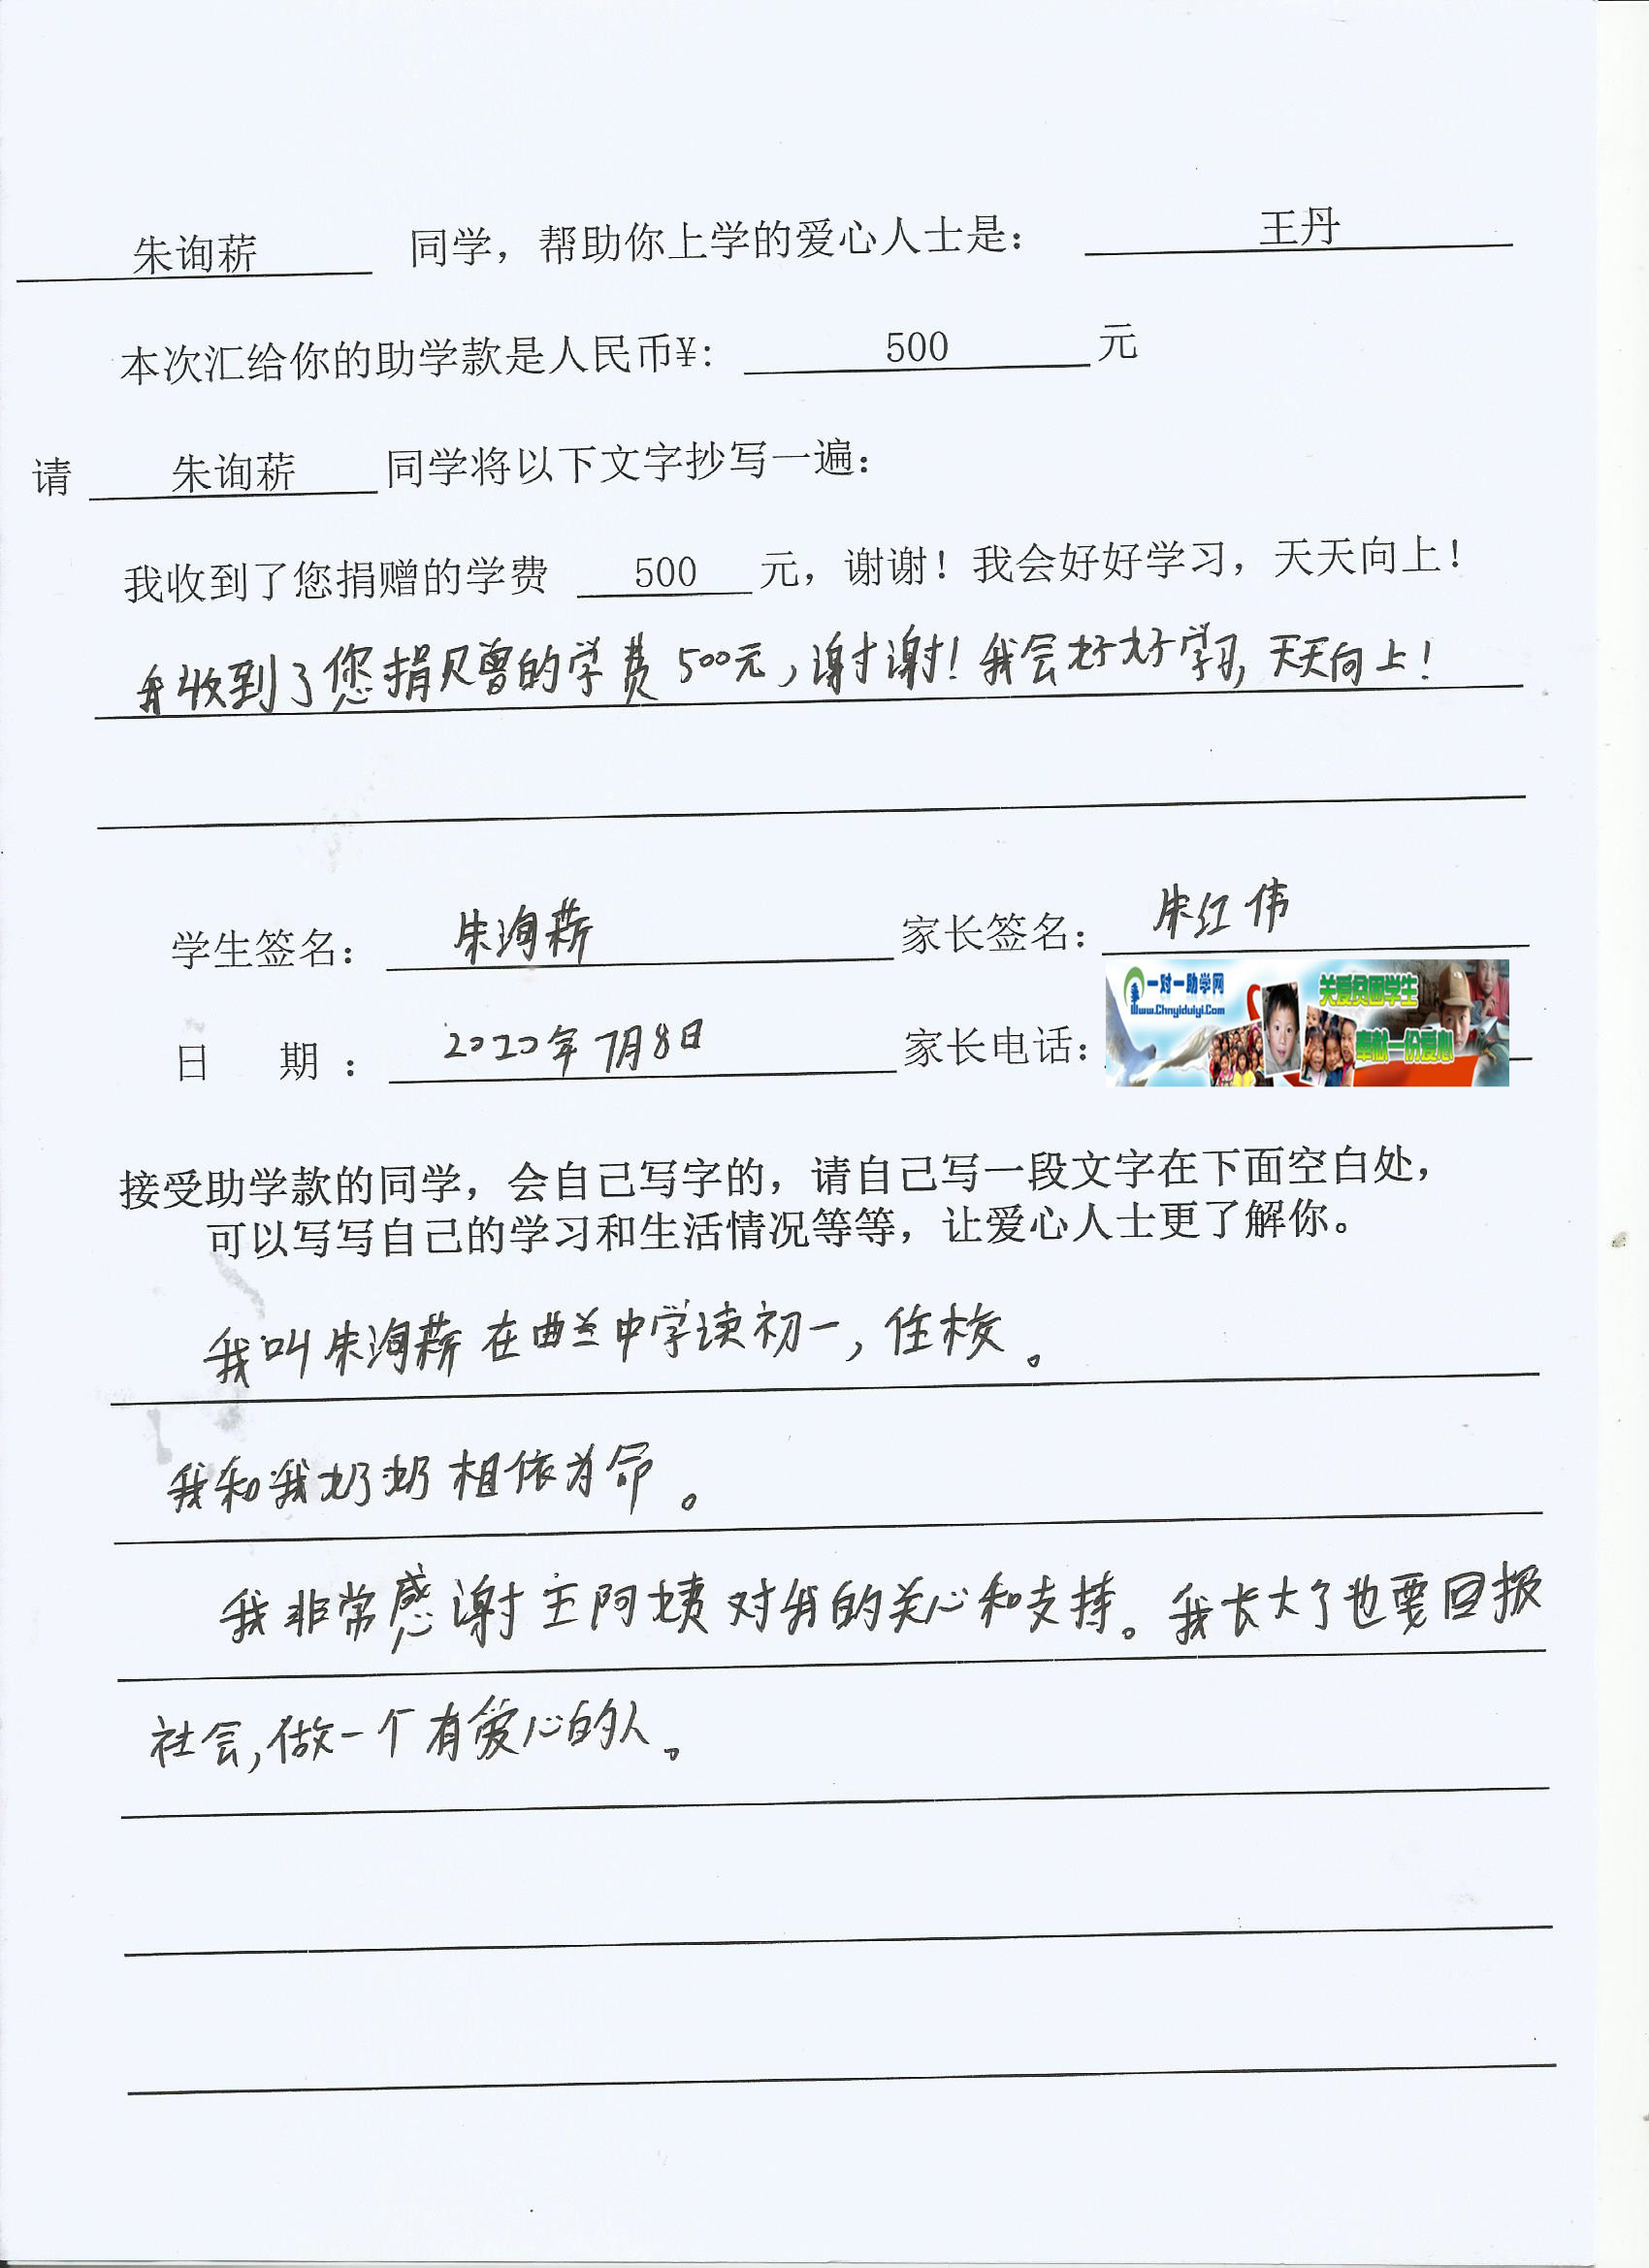 朱询薪 同学，帮助你上学的爱心人士是： 王丹
本次汇给你的助学款是人民币¥： 500 元
请 朱询薪 同学将以下文字抄写一遍：
我收到了您捐赠的学费 500 元，谢谢！我会好好学习，天天向上！
我收到了您捐赠的学费500元，谢谢！我会好好学习，天天向上！
学生签名： 朱询薪 家长签名： 朱红伟
一对一助学网
www.Chnyiduiyi.Com
关爱贫困学生
奉献一份爱心
日 期： 2020年7月8日 家长电话：
接受助学款的同学，会自己写字的，请自己写一段文字在下面空白处，
可以写写自己的学习和生活情况等等，让爱心人士更了解你。
我叫朱询薪在曲兰中学读初一，住校。
我和我奶奶相依为命。
我非常感谢王阿姨对我的关心和支持。我长大了也要回报
社会，做一个有爱心的人。